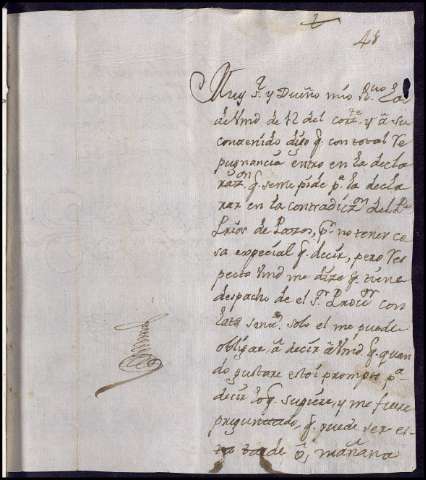 48
Muy Sr. y Dueño mio Rvo. la
de Vmd de 12 del corrte. y a su
contenido digo q. con total re
pugnancia entro en la decla
razon q. se me pide pa. la decla
rar en la contradizn. del Pe.
Prior de Pazos, pr. no tener co
sa especial q. decir, pero res
pecto Vmd me dize q. tiene
despacho de el Sr. Provr. con
solo el me puede
obligar a decir a Vmd q. quan
do gustare estoi prompto pa.
decir lo q. supiere, y me fuere
preguntado, q. puede ser es
ta tarde o, mañana